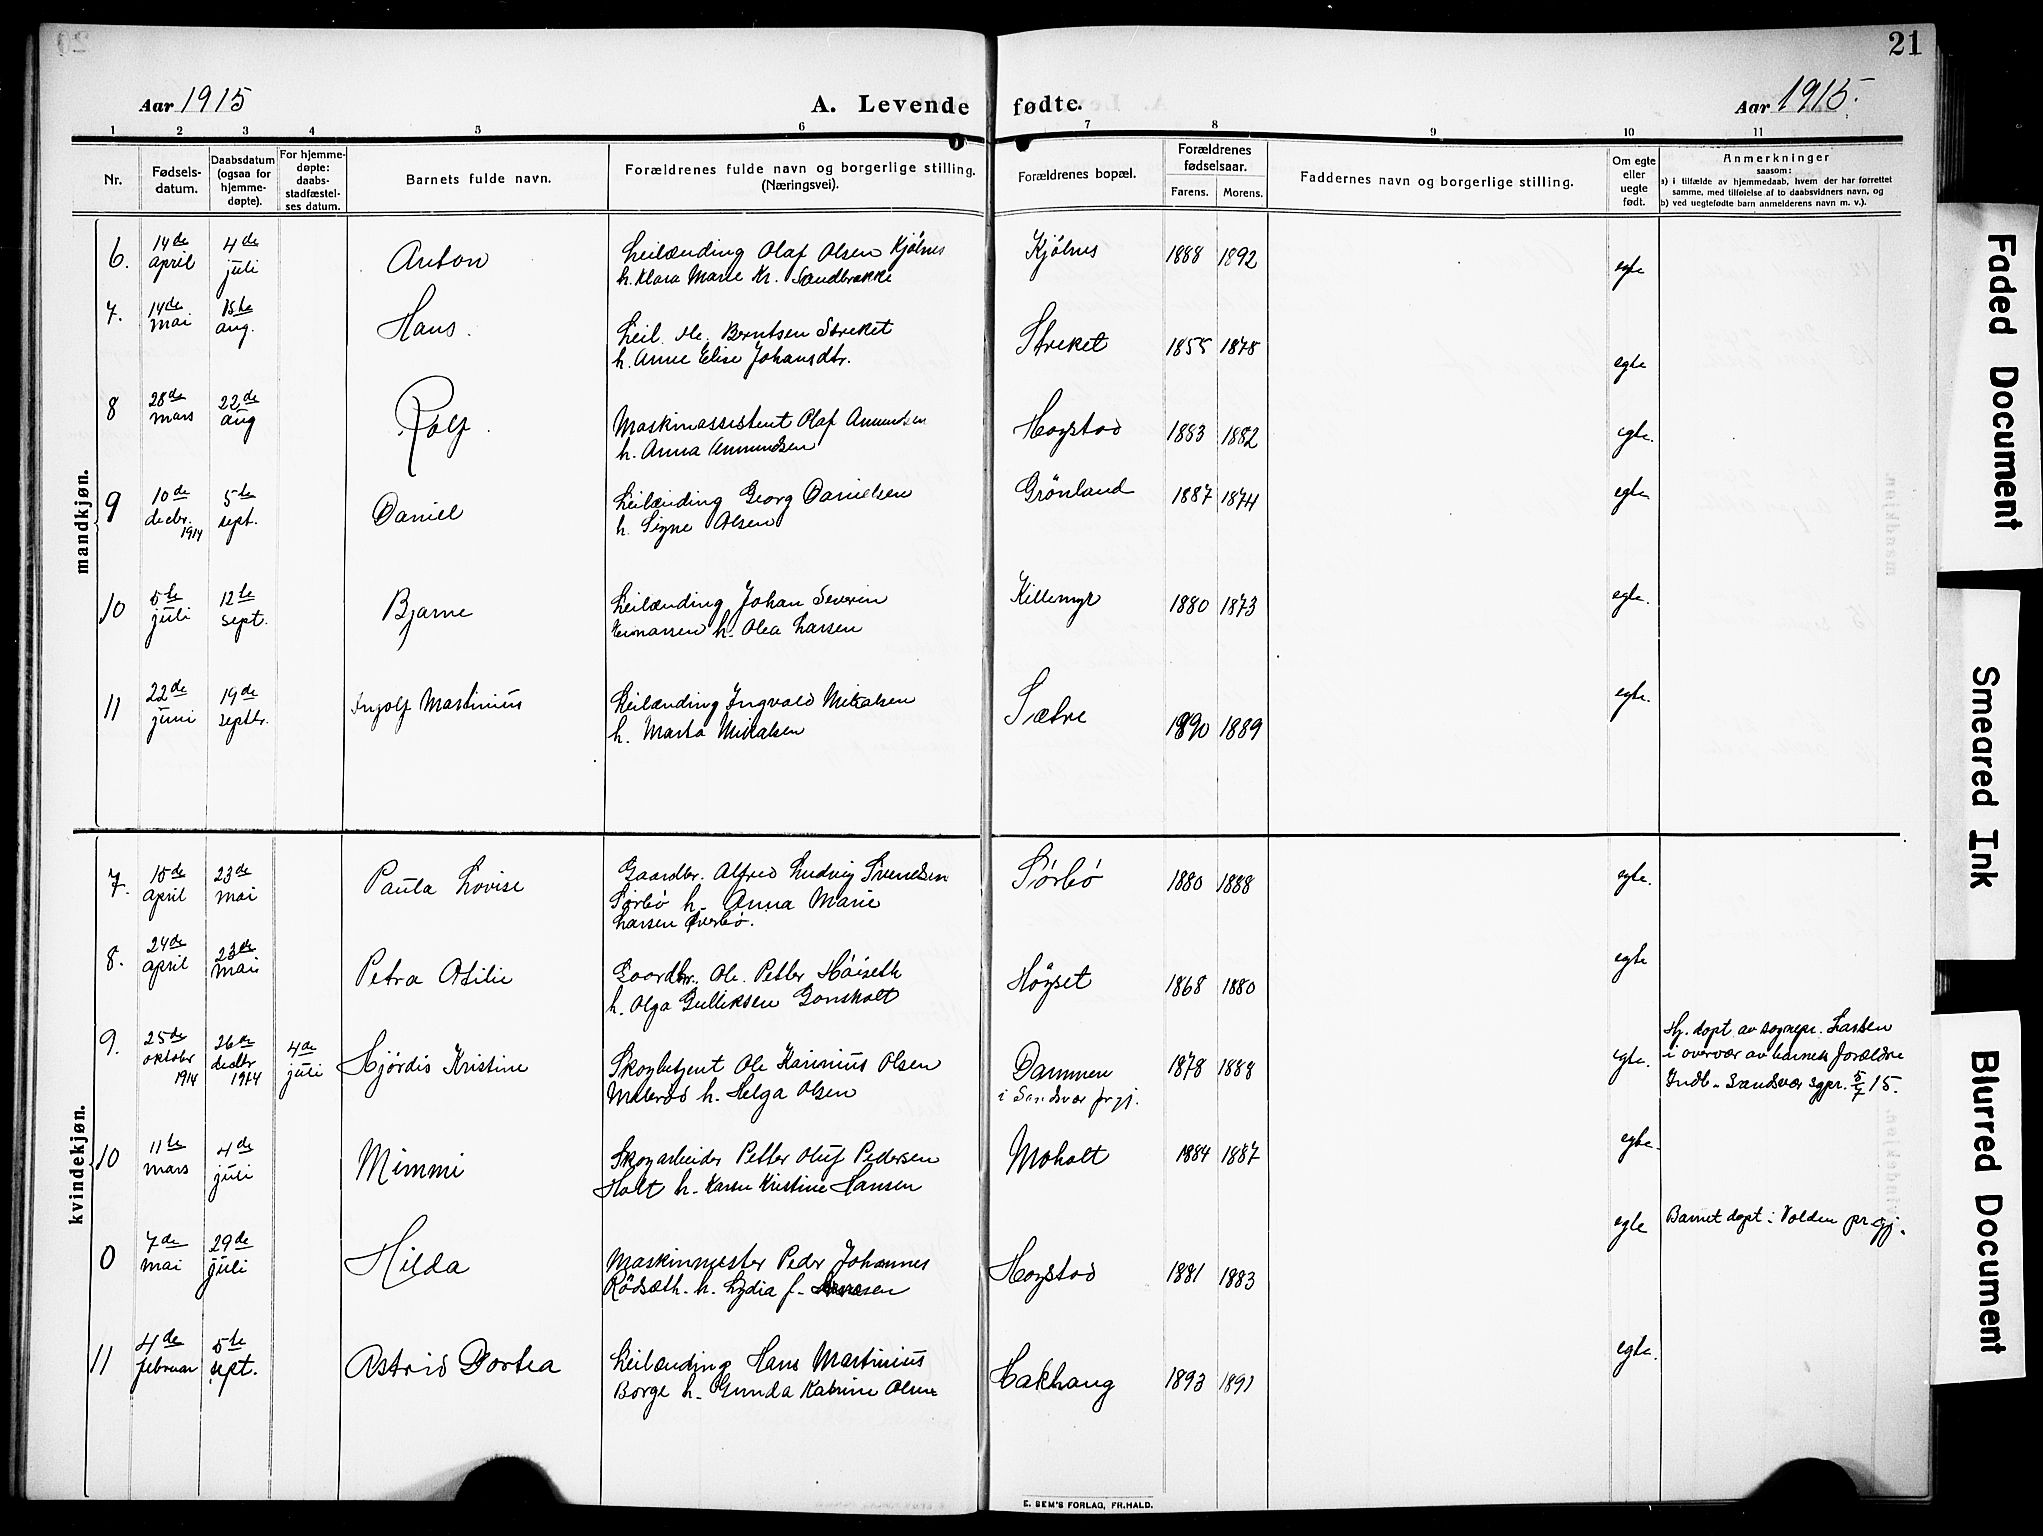 20
21
Aar 1915
A. Levende fødte.
Aar 1915.
1 2 3 4 5 6 7 8 9 10 11
Nr.
Fødsels-
datum.
Daabsdatum
(ogsaa for
hjemme-
døpte).
For hjemme-
døpte:
daabs-
stadfæstel-
ses datum.
Barnets fulde navn.
Forældrenes fulde navn og borgerlige stilling.
(Næringsvei).
Forældrenes bopæl.
Forældrenes
fødselsaar.
Farens. Morens.
Faddernes navn og borgerlige stilling.
Om egte
eller
uegte
født.
Anmerkninger
saasom:
a) i tilfælde av hjemmedaab, hvem der har forrettet
samme, med tilføielse af to daabsvidners navn, og
b) ved uegtefødte barn anmelderens navn m. v.).
mandkjøn.
6. 14de april 4de juli Anton
Leilænding Olaf Olsen Kjölnes
h. Klara Marie Kr. Sandbrække
Kjölnes 1888 1892 egte
7. 14de mai 15te aug. Hans.
Leil. Ole Berntsen Streket
h. Anne Elise Johansdtr.
Streket 1855 1878 egte
8 28de mars 22de aug Rolf.
Maskinassistent Olaf Amundsen
h. Anna Amundsen
Hogstad 1883 1882 egte.
9 10de decbr. 1914 5te sept. Daniel
Leilænding Georg Danielsen
h. Signe Olsen
Grönland 1887 1874 egte
10 5te juli 12te sept. Bjarne
Leilænding Johan Severin
h. Olea Larsen
Killemyr 1880 1873 egte.
11 22de juni 19de septbr. Ingolf Martinius
Leilænding Ingvald Mikalsen
h. Marta Mikalsen
Sætre 1890 1889 egte.
kvindekjøn.
7. 15de april 23de mai Paula Lovise
Gaardbr. Alfred Ludvig Svendsen
Sörbö h. Anna Marie
Larsen Överbö.
Sörbö 1880 1888 egte.
8. 24de april 23de mai Petra Otilie
Gaardbr. Ole Petter Höiseth
h. Olga Gulliksen Gonsholt
Höyset 1868 1880 egte
9. 25de oktober 1914 26de decbr 1914 4de juli Hjördis Kristine
Skogbetjent Ole Karinius Olsen
h. Helga Olsen
Dammen
i Sandsvær prgj.
1878 1888 egte.
Hj. döpt av sognepr. Larsen
i overvær av barnets forældre
Indb. Sandsvær sgpr. 5/7 15.
10 11te mars 4de juli Mimmi
Skogarbeider Petter Oluf Pedersen
Holt h. Karen Kristine Hansen
Moholt 1884 1887 egte.
0 7de mai 29de juli Hilda
Maskinmester Peder Johannes
Rödsæth. h. Lydia f.
Hogstad 1881 1883 egte
Barnet döpt i Volden prgj.
11 4de februar 5te sept. Astrid Dortea
Leilænding Hans Martinius
Borge h. Gunda Katrine Olsen
Hakhaug 1893 1891 egte.
E. SEM'S FORLAG, FR.HALD.
Faded Document
Smeared Ink
Blurred Document